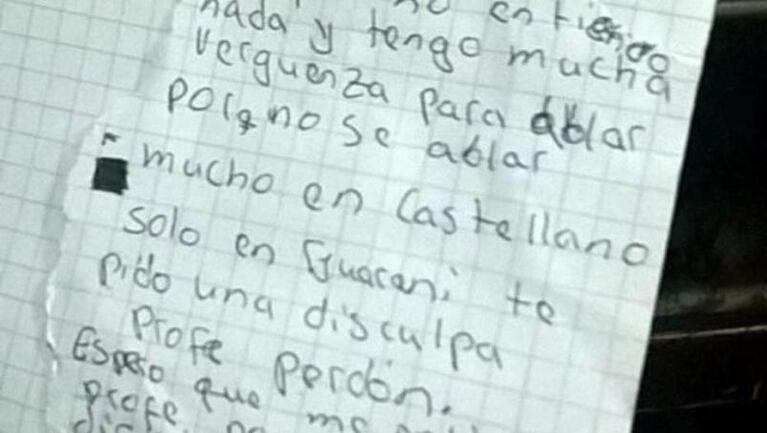 nada y tengo mucha
no entiendo
verguenza para ablar
porq no se ablar
mucho en Castellano
solo en Guarani te
pido una disculpa
Profe perdón.
Espero que me
profe